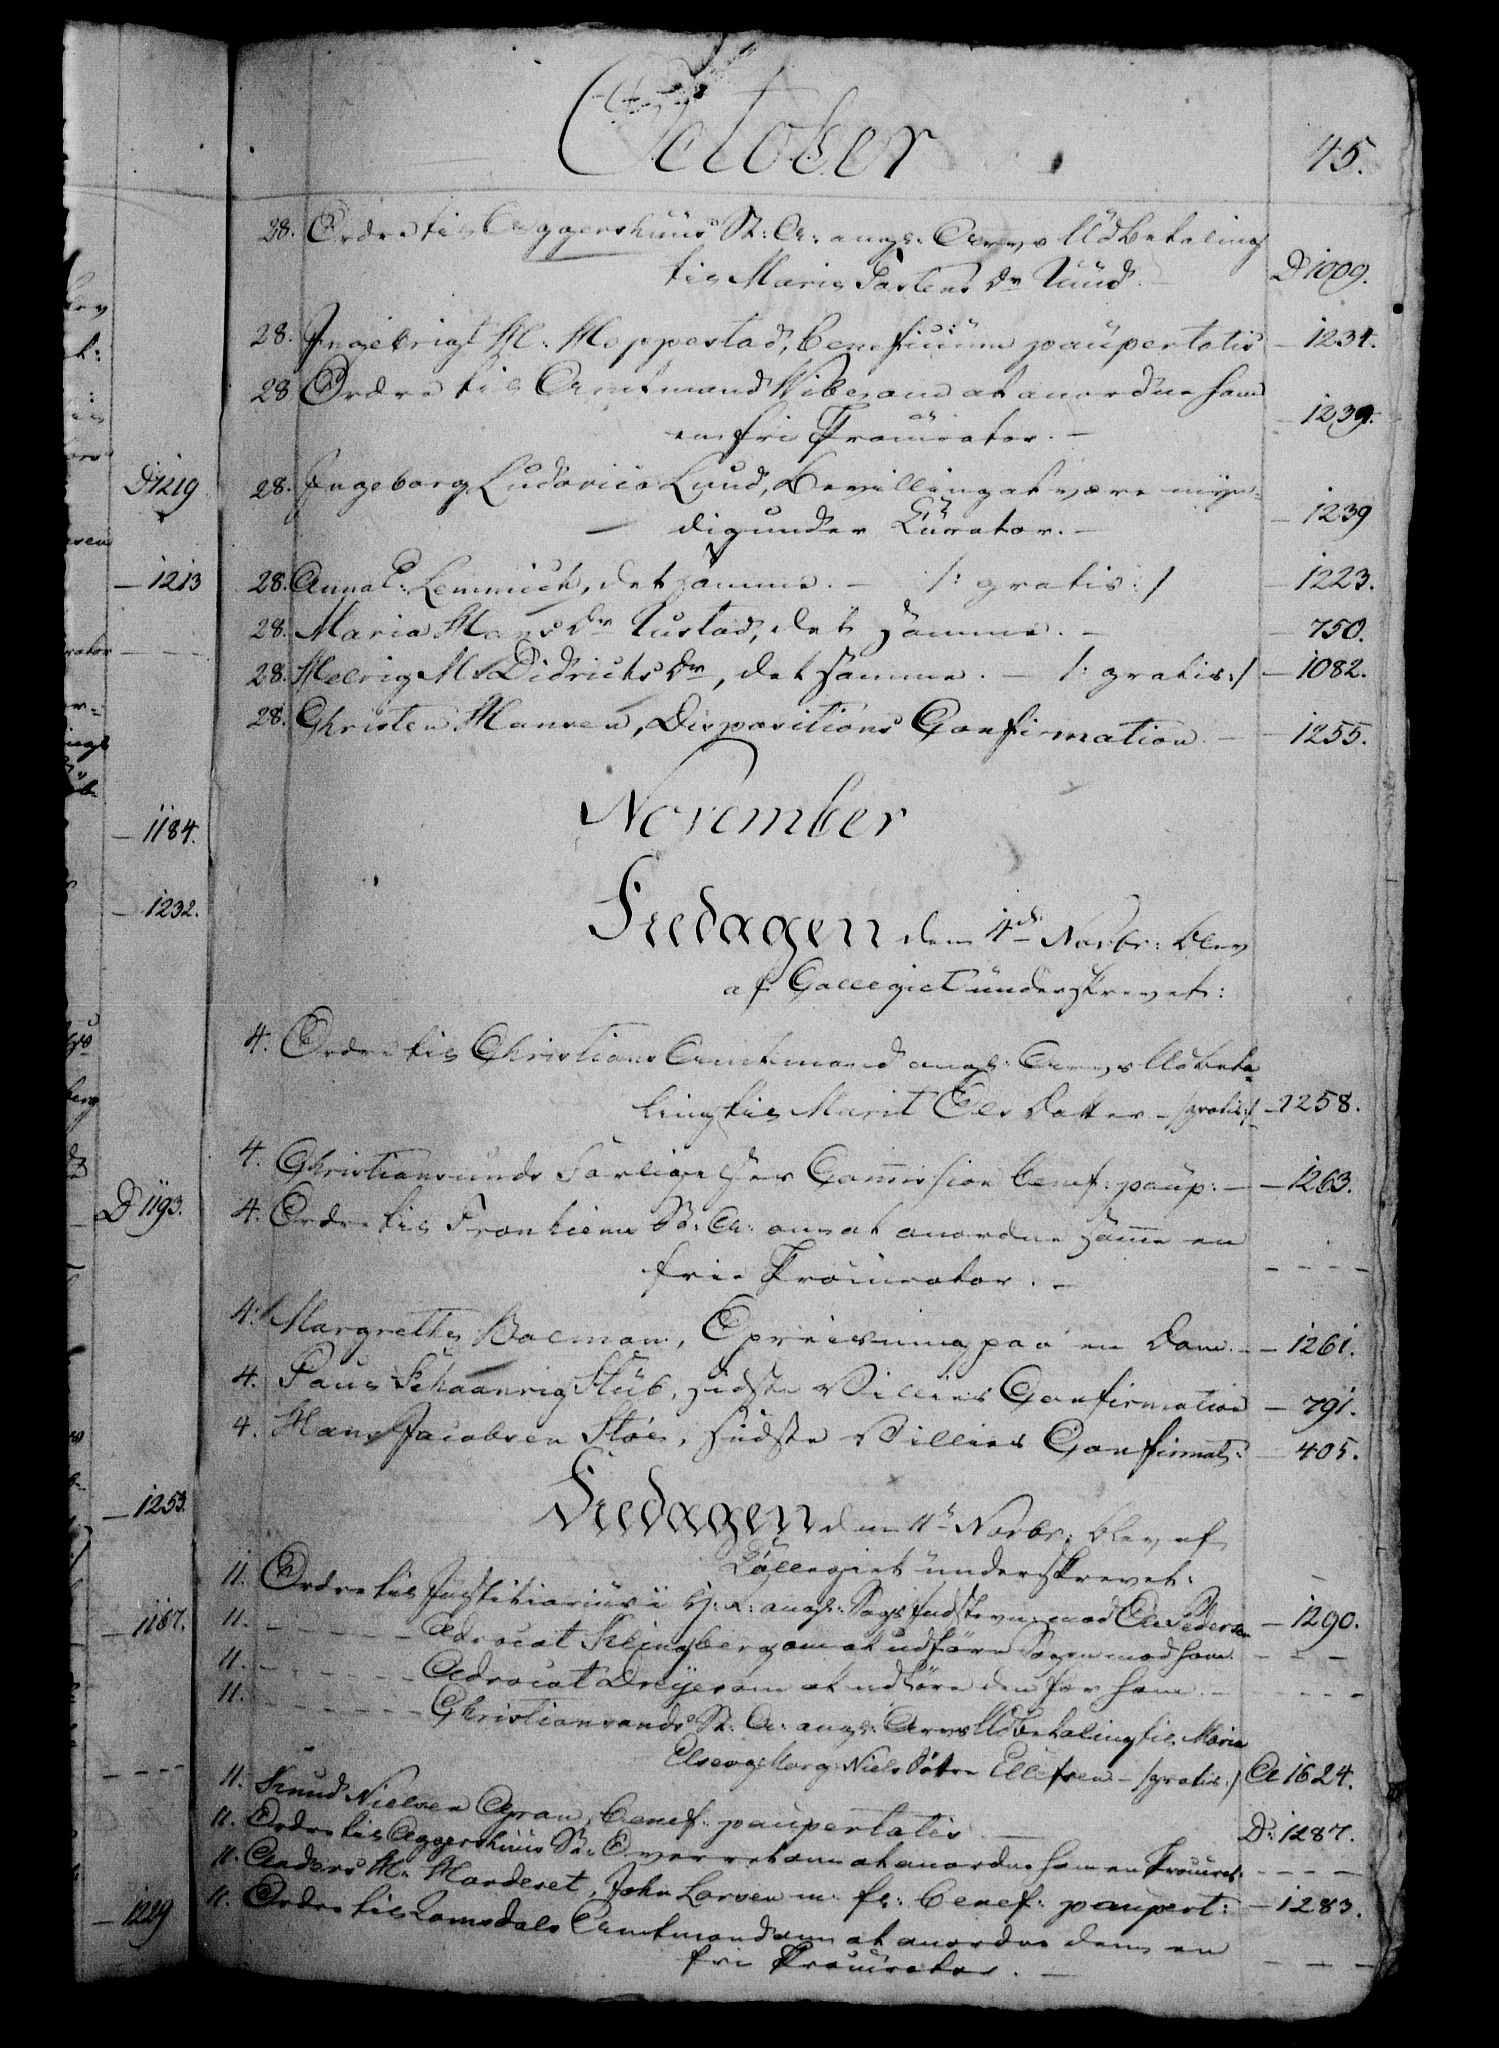 October
45.
28. Ordre til Aggershuus St: A: angl: Arvs Udbetaling
til Marie Dr Ruud. D 1009.
28. Ingebrigt H: Hoppestad, beneficium paupertatis - 1234.
28 Ordre til Amtmand Vibe om at anordne ham
en fri Procurator. - - 1234.
28. Ingeborg Ludovica Lund, Bevilling at være myn-
dig under Curator. - - 1239
28. Anna C: Lemmich, det samme. - /: gratis :/ - 1223.
28. Maria Hans Dr Rustad, det samme. - - 750.
28. Helvig M: Didrichs Dr, det samme. - /: gratis :/ - 1082.
28. Christen Hansen, Dispositions Confirmation - - 1255.
November
Fredagen dem 4de Novbr: blev
af Collegiet underskrevet:
4. Ordre til Christians Amtmand angl: Arvs Udbeta-
ling til Marit Ols Datter - /gratis:/ - 1258.
4. Christiansunds Forligelses Commission benef: paup: - - 1263.
4. Ordre til Tronhiems St: A: om at anordne samme en
frie Procurator. - - - - -
4. Margrethe Bolman, Opreisning paa en Dom. - - 1261.
4. Paul Schaanvig Stub, sidste Villies Confirmation - 791.
4. Hans Jacobsen Støe, sidste Villies Confirmat: - 405.
Fredagen den 11te Novbr: blev af
Collegiet underskrevet:
11. Ordre til Justitiarius i H: R: angl: Sags Indstevn: mod Ole Pedersen - 1290.
11. - - - - - Advocat Klingberg om at udføre Sagen mod ham - - -
11. - - - - - Advocat Dreyer om at udføre den for ham. - - - - -
11. - - - - - Christiansands St: A: angl: Arvs Udbetaling til Maria
Else og Marg: Niels Døtre Ellefsen - /gratis:/ A 1624.
11. Knud Nielsen benef: paupertatis. - D: 1287.
11. Ordre til Aggershuus St: Overret om at anordne ham en Procurat: - - - -
11. Anders H: John Larsen m: fl: benef: paupert: - 1283.
11. Ordre til Romsdals Amtmand om at anordne dem en
fri Procurator. - - - -
D 1219
- 1213
- - - -
- 1184.
- 1232.
D 1193.
- 1253.
- 1187.
- - - -
- 1229